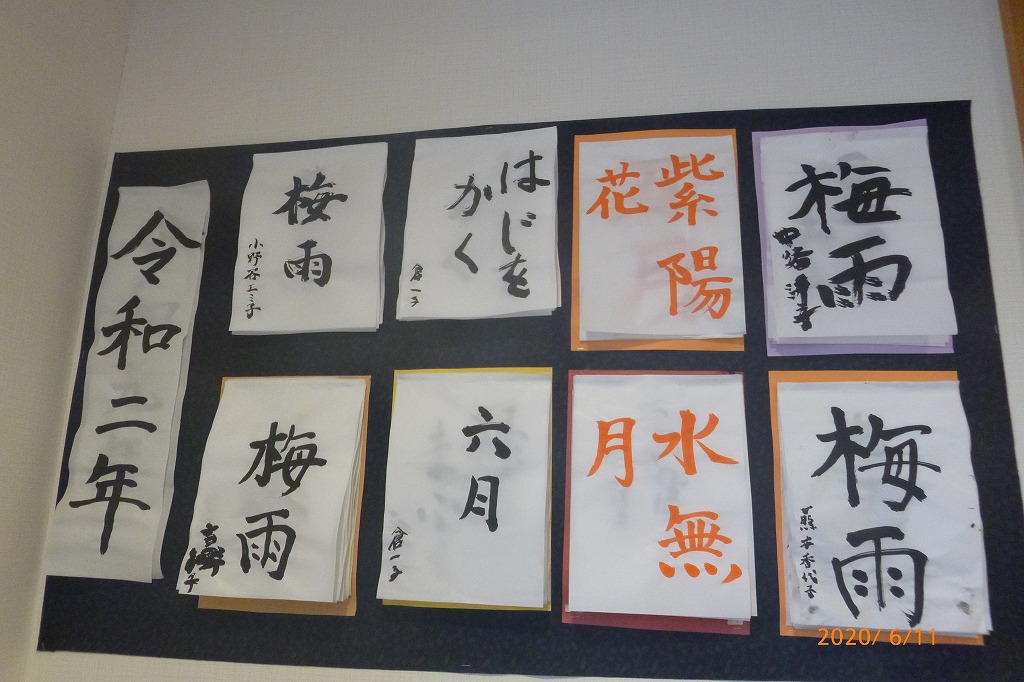 梅雨
紫陽
花
はじを
かく
倉一子
梅雨
小野谷エミ子
令和二年
梅雨
熊本香代子
水無
月
六月
倉一子
梅雨
2020/ 6/11